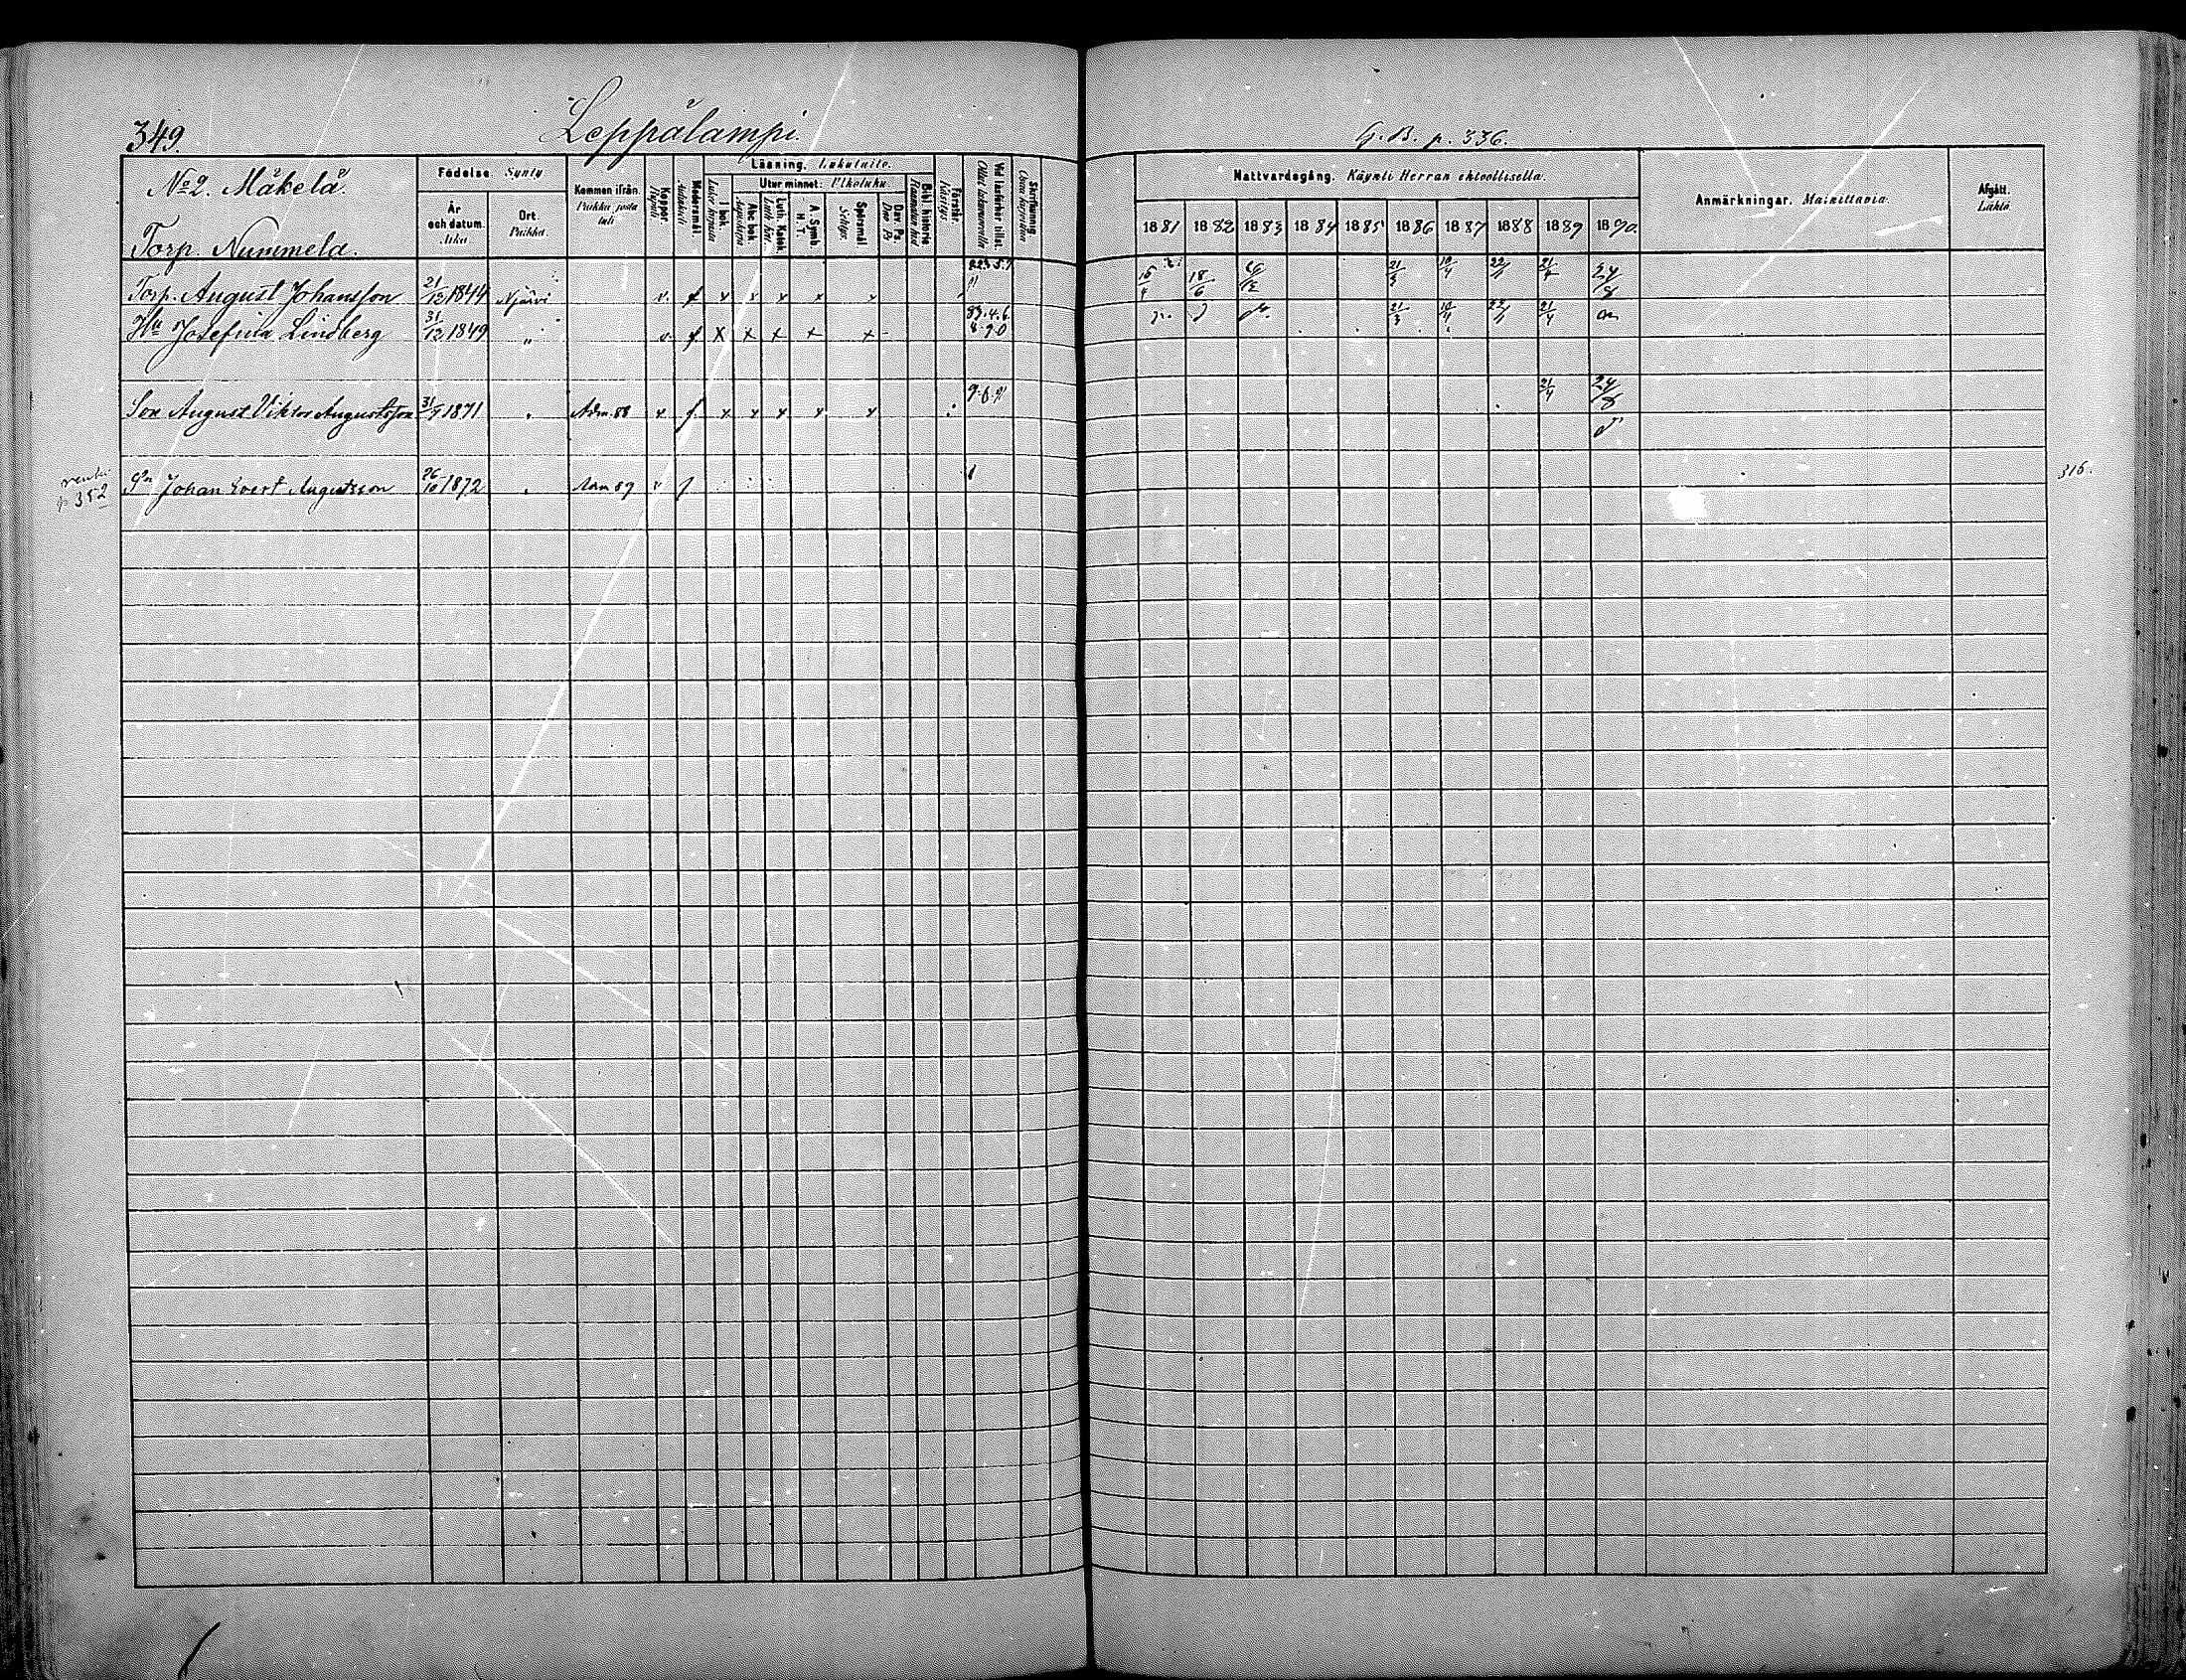 349.
Leppälampi.
G. B. p. 336.
No 2. Mäkelä.
Torp. Nummela.
Födelse. Synty
År och datum. Aika
Ort. Paikka.
Kommen ifrån. Paikka josta tuli
Koppor. Rupuli
Modersmål.
Läsning. Lukutaito.
I bok.
Utur minnet: Ulkoluku
Abc bok.
Luth. Katek.
A. Symb. H. T.
Spörsmål
Dav. Ps.
Bibl. historia
Förstår. Käsitys.
Vid läsförhör tillst.
Skrifkunnig
Nattvardsgång. Käynti Herran ehtoollisella.
1881 1882 1883 1884 1885 1886 1887 1888 1889 1890.
Anmärkningar. Mainittavia.
Afgått. Lähtö.
Torp. August Johansson 21/12 1844 Njärvi v. f x x x x x 15/4 18/6 21/3 10/4 21/4 24/8
Hu Josefina Lindberg 31/12 1849 " v. f x x x x x 83.4.6. 8.9.0 21/3 10/4 21/4
Son August Viktor Augustsson 31/7 1871 " Adm. 88 v. f. x x x x x 21/4 24/8
p 352 Sn Johan Evert Augustsson 26/10 1872 " Adm 89 v f 316.